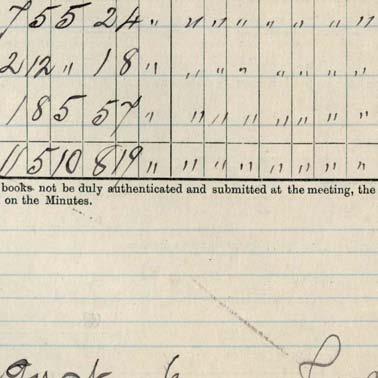 7 5 5 2 4 " " " " " " " " "
2 12 " 1 8 " " " " " " " " "
1 8 5 5 7 " " " " " " " " "
11 5 10 8 19 " " " " " " " " "
books not be duly authenticated and submitted at the meeting, the
on the Minutes.